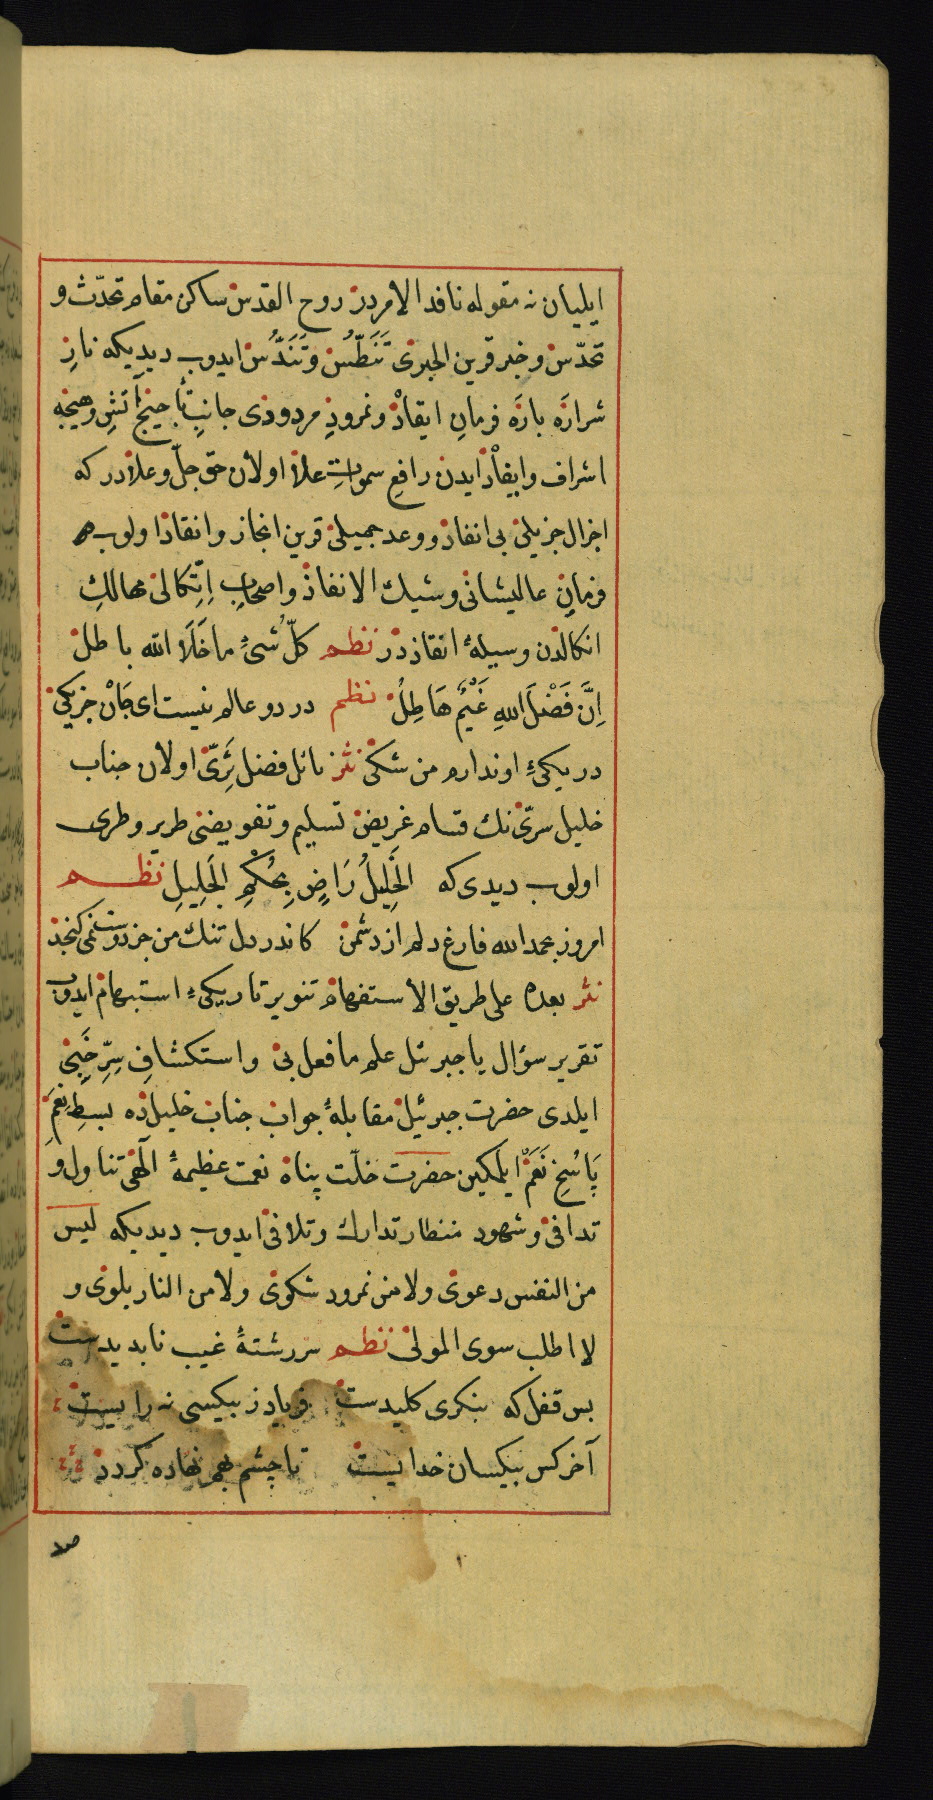 ايليان نه مقوله نافد الامردر روح القدس ساكن مقام تحدّث و
تحدّس وخبر قرين الجبرى تَنَطُّس وتَنَدُّس ايدوب ديديكه نارِ
شرارَه بارَه فرمانِ ايقاد ونمرودِ مردودى جانبِ تأجيجِ آتشِ وهيجه
اشراف وايفاد ايدن رافعِ سمواتِ علا اولان حق جلّ وعلادر كه
اجزال جزيلى بى انفاد ووعد جميلى قرين انجاز وانقاذ اولوب
فرمانِ عاليشانى وشيك الانفاذ واصحابِ اِتِّكالى مهالكِ
انكالدن وسيلهٔ انقاذدر نظم كلّ شىءٍ ما خَلَا الله باطل
اِنَّ فَضْلَ اللهِ غَيْمٌ هَاطِلُ نظم در دو عالم نيست اى جَان جز يكى
در يكىءِ او ندارم من شكى نثر نائل فضل ثَرِىّ اولان جناب
خليل سرىّ نك قسام غريض تسليم وتفويضى طرير وطرى
اولوب ديدى كه الخَلِيلُ رَاضٍ بِحُكْمِ الجَلِيلِ نظم
امروز بحمد الله فارغ دلم از دشمن كاندر دل تنك من جز دوست نمى كنجد
نثر بعده على طريق الاستفهام تنوير تاريكىءِ استبهام ايدوب
تقرير سؤال يا جبرئل علم ما فعل بى واستكشافِ سِرِّ خَبِى
ايلدى حضرت جبرئيل مقابلهٔ جواب جناب خليلده بسطِ نِعَمِ
پَاسُخِ نَعَمْ ايلمكين حضرت خلّت پناه نعمت عظيمهٔ الهى تناول و
تدافى وشهود منتظار تدارك وتلافى ايدوب ديديكه ليس
من النفس دعوى ولا من نمرود شكوى ولا من النار بلوى و
لا اطلب سوى المولى نظم سررشتهٔ غيب نابديدست
بس قفل كه بنكرى كليدست فرياد ز بيكسى نه رايست
آخر كس بيكسان خدايست تا چشم بهم نهاده كردد